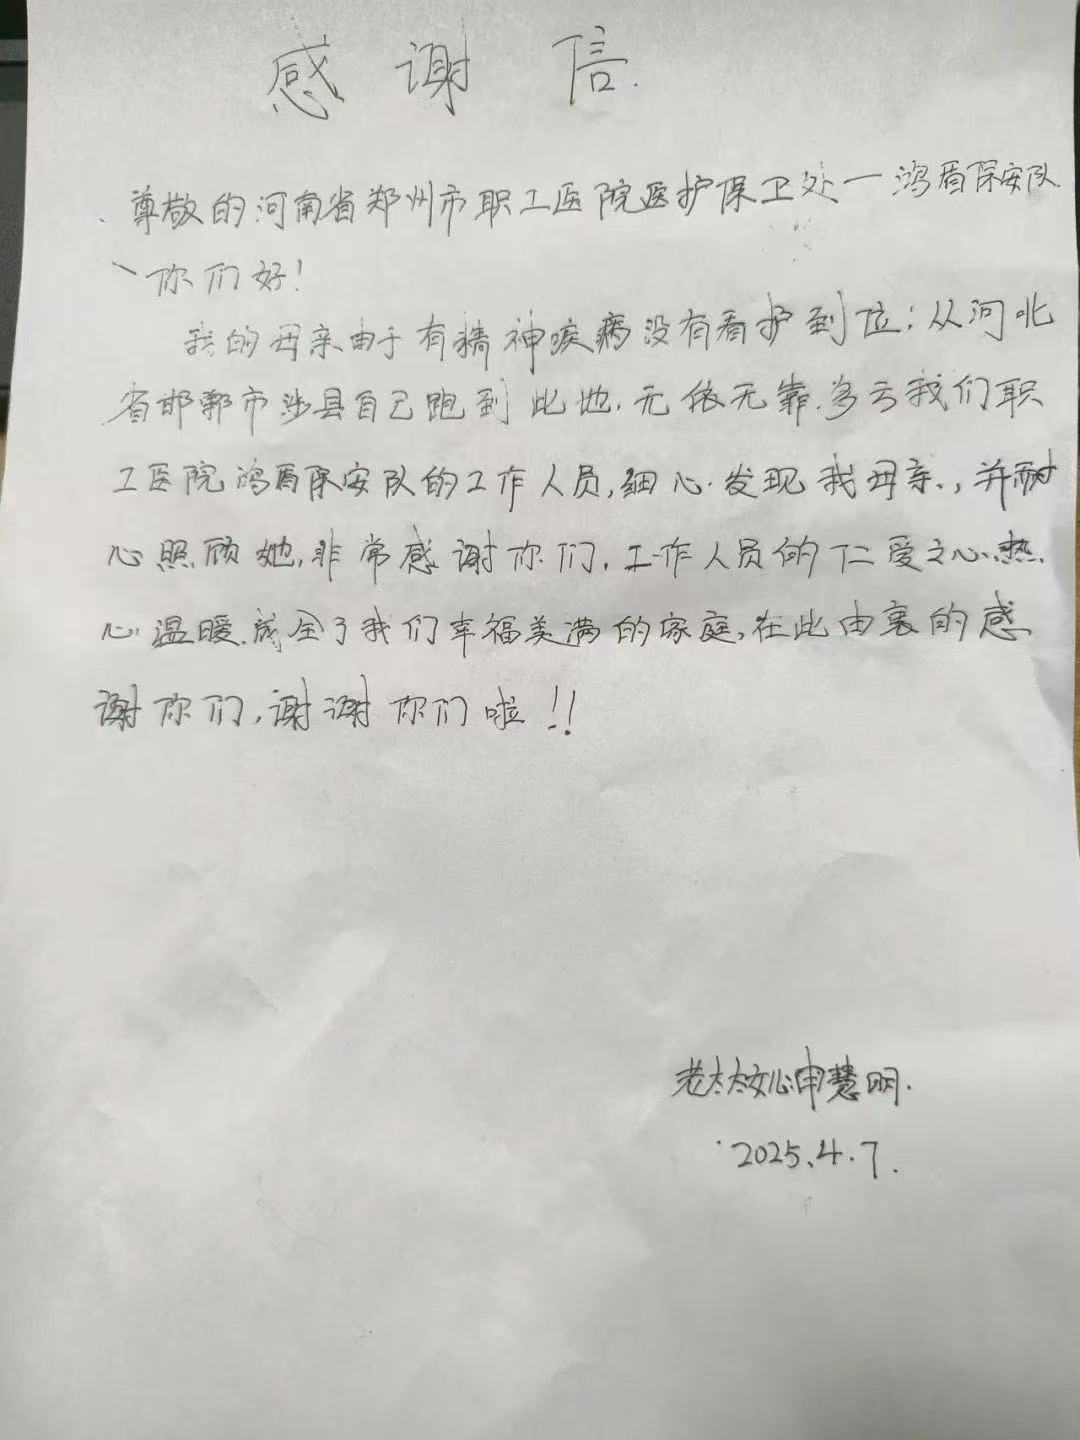 感谢信.
尊敬的河南省郑州市职工医院医护保卫处一鸿盾保安队
你们好!
我的母亲由于有精神疾病没有看护到位;从河北
省邯郸市涉县自己跑到此地.无依无靠.多亏我们职
工医院鸿盾保安队的工作人员,细心.发现我母亲.,并耐
心照顾她,非常感谢你们.工作人员的仁爱之心.热
心温暖.成全了我们幸福美满的家庭,在此由衷的感
谢你们,谢谢你们啦!!
老太太女儿:申慧明.
2025.4.7.